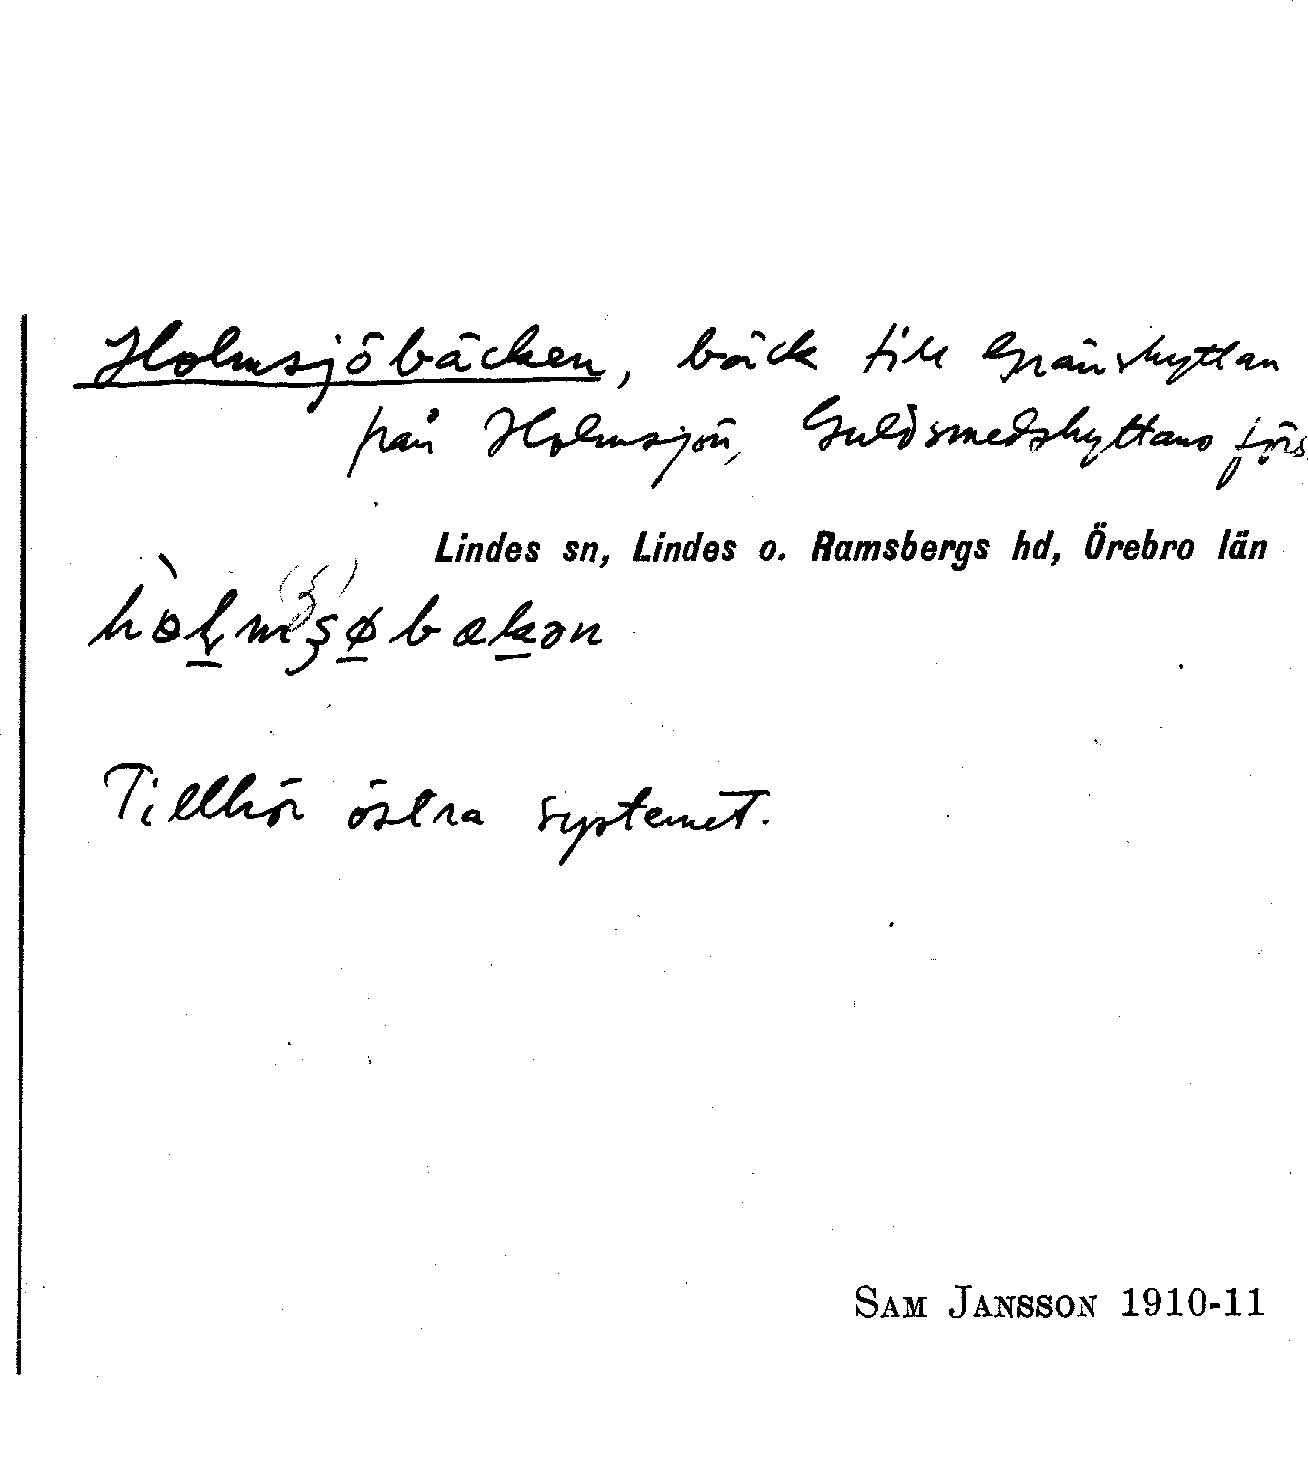 Holmsjöbäcken, bäck till Gränshyttan
från Holmsjön, Guldsmedshyttans förs.
Lindes sn, Lindes o. Ramsbergs hd, Örebro län
Tillhör östra systemet.
SAM JANSSON 1910-11